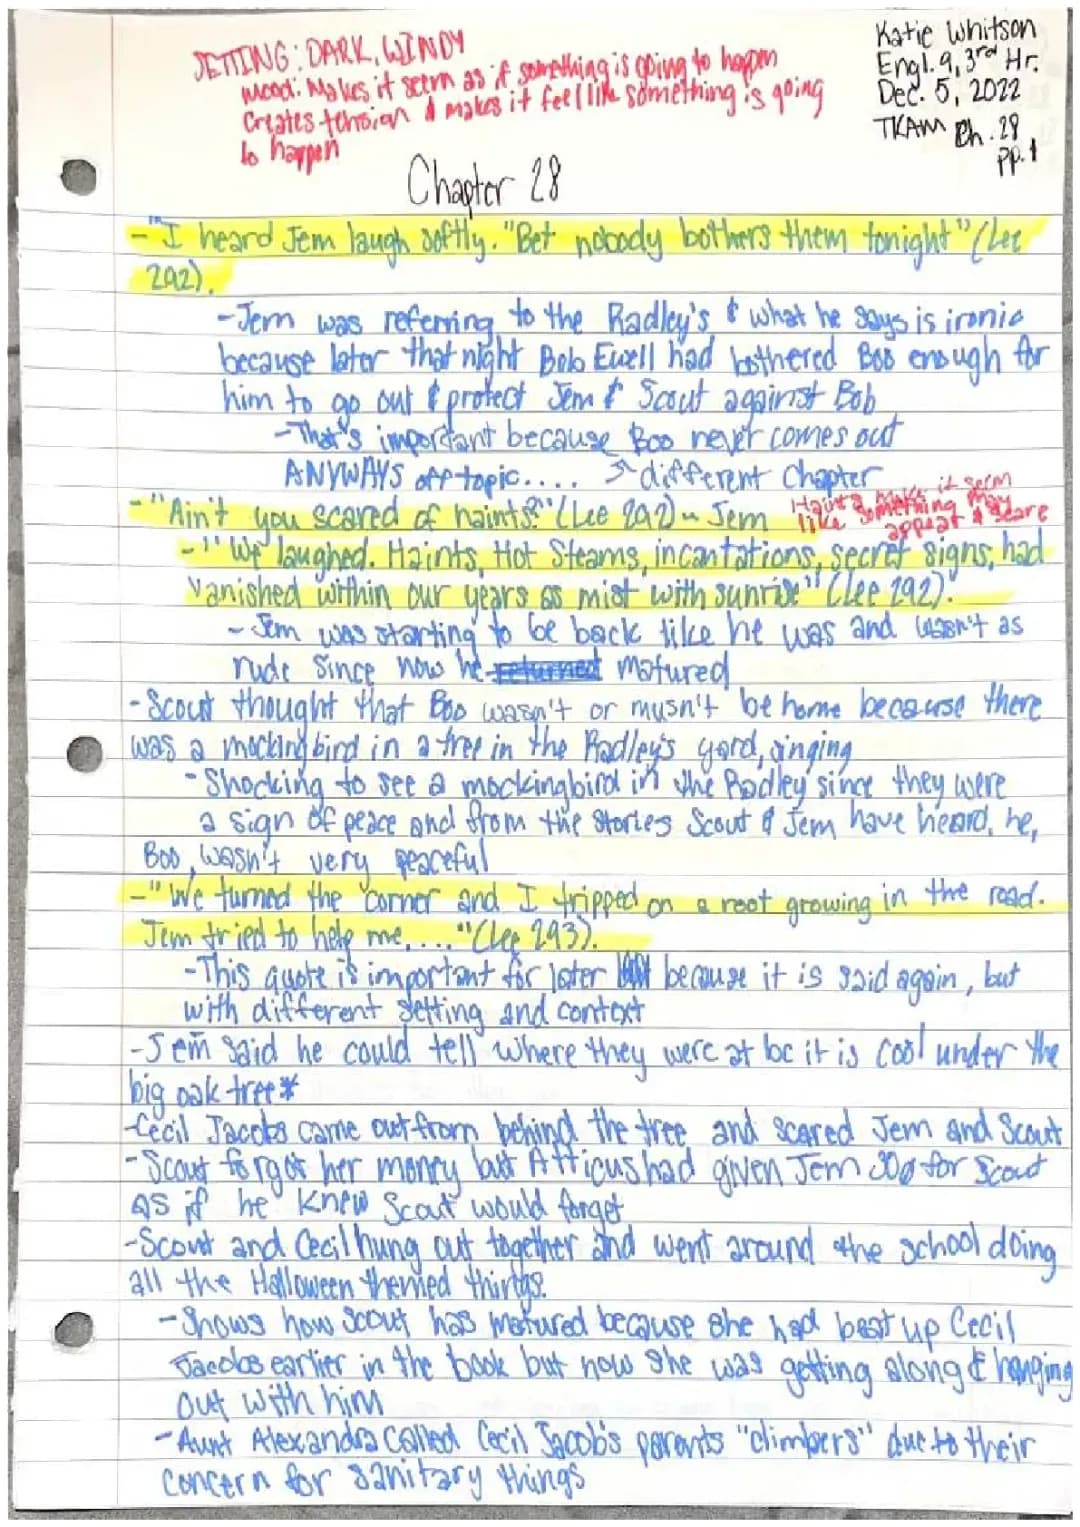 SETTING: DARK, WINDY
mood: Makes it seem as if something is going to happen
Creates tension & makes it feel like something is going
to happen
Katie Whitson
Engl. 9, 3rd Hr.
Dec. 5, 2022
TKAM Ch. 28
pp. 1
Chapter 28
- "I heard Jem laugh softly. "Bet nobody bothers them tonight" (Lee
292).
- Jem was referring to the Radley's & what he says is ironic
because later that night Bob Ewell had bothered Boo enough for
him to go out & protect Jem & Scout against Bob
- That's important because Boo never comes out
ANYWAYS off topic.... different Chapter
- "Ain't you scared of haints?" (Lee 292) ~ Jem
Haints makes it seem
like something may
appear & scare
- "We laughed. Haints, Hot Steams, incantations, secret signs, had
vanished within our years as mist with sunrise" (Lee 292).
- Jem was starting to be back like he was and wasn't as
rude since now he returned matured
- Scout thought that Boo wasn't or musn't be home because there
was a mockingbird in a tree in the Radley's yard, singing
- Shocking to see a mockingbird in the Radley since they were
a sign of peace and from the stories Scout & Jem have heard, he,
Boo, wasn't very peaceful
- "We turned the corner and I tripped on a root growing in the road.
Jem tried to help me,...." (Lee 293).
- This quote is important for later because it is said again, but
with different setting and context
- Jem said he could tell where they were at bc it is cool under the
big oak tree*
- Cecil Jacobs came out from behind the tree and scared Jem and Scout
- Scout forgot her money but Atticus had given Jem 30¢ for Scout
as if he knew Scout would forget
- Scout and Cecil hung out together and went around the school doing
all the Halloween themed things.
- Shows how Scout has matured because she had beat up Cecil
Jacobs earlier in the book but now she was getting along & hanging
out with him
- Aunt Alexandra called Cecil Jacob's parents "climbers" due to their
concern for sanitary things